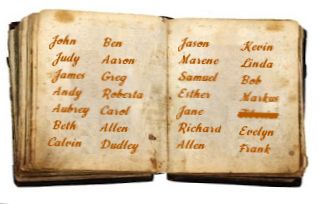 John Ben
Judy Aaron
James Greg
Andy Roberta
Aubrey Carol
Beth Allen
Calvin Dudley
Jason Kevin
Marene Linda
Samuel Bob
Esther Markus
Jane
Richard Evelyn
Allen Frank